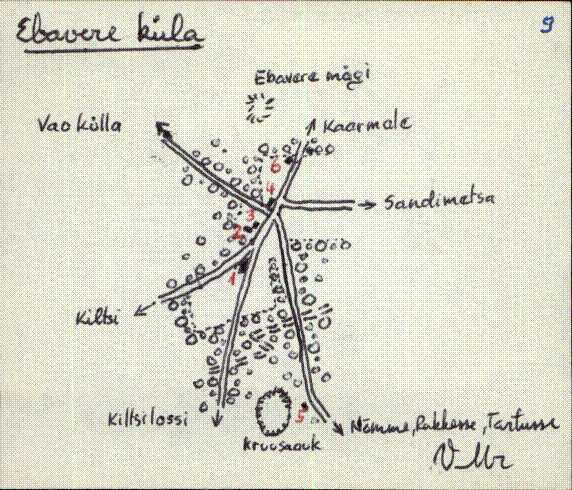 Ebavere küla
9
Ebavere mägi
Vao külla
Kaarmale
6
4
Sandimetsa
3
2
1
Kiltsi
Kiltsilossi
5
Kruusaauk
Nõmme, Rakkesse, Tartusse